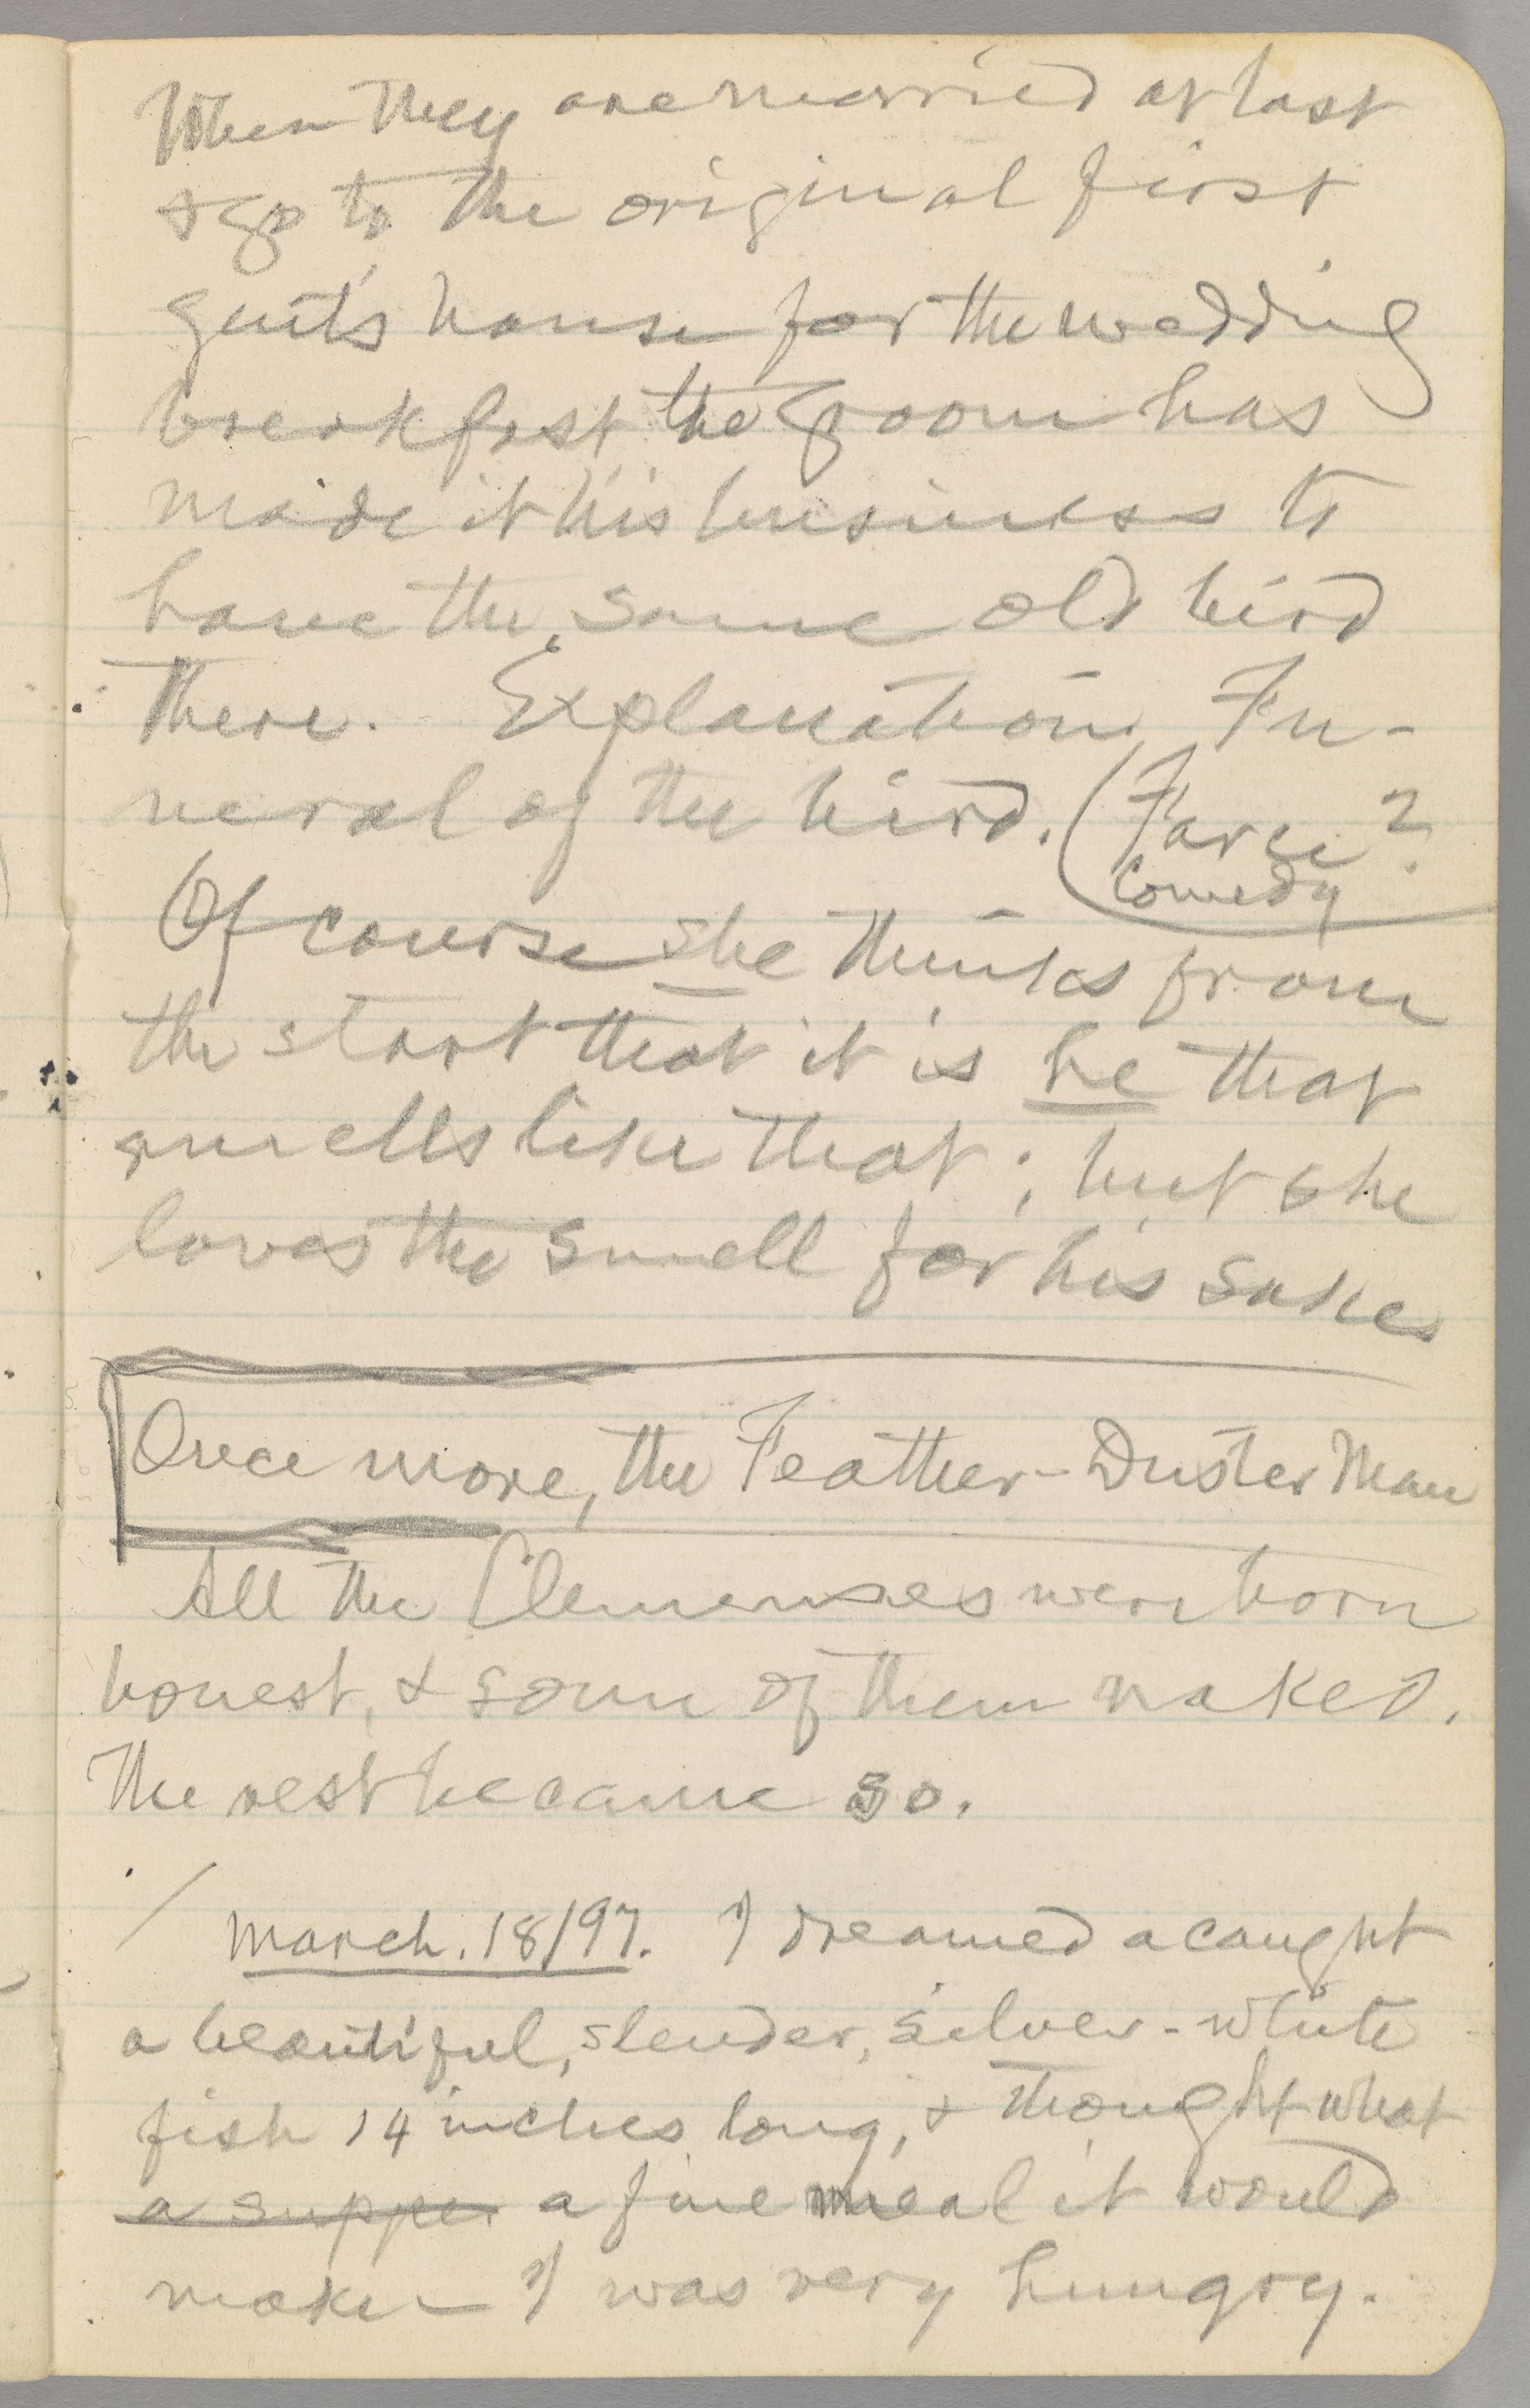 When they are married at last
& go to the original first
gent's house for the wedding
breakfast the groom has
made it his business to
have the same old bird
there. Explanation. Fu-
neral of the bird. (Farce?
Comedy
Of course she thinks from
the start that it is he that
smells like that; but she
loves the smell for his sake.
Once more, the Feather-Duster Man
All the Clemenses were born
honest, & some of them naked.
The rest became so.
March. 18/97. I dreamed a caught
a beautiful, slender, silver-white
fish 14 inches long, & thought what
a suppe a fine meal it would
make — I was very hungry.